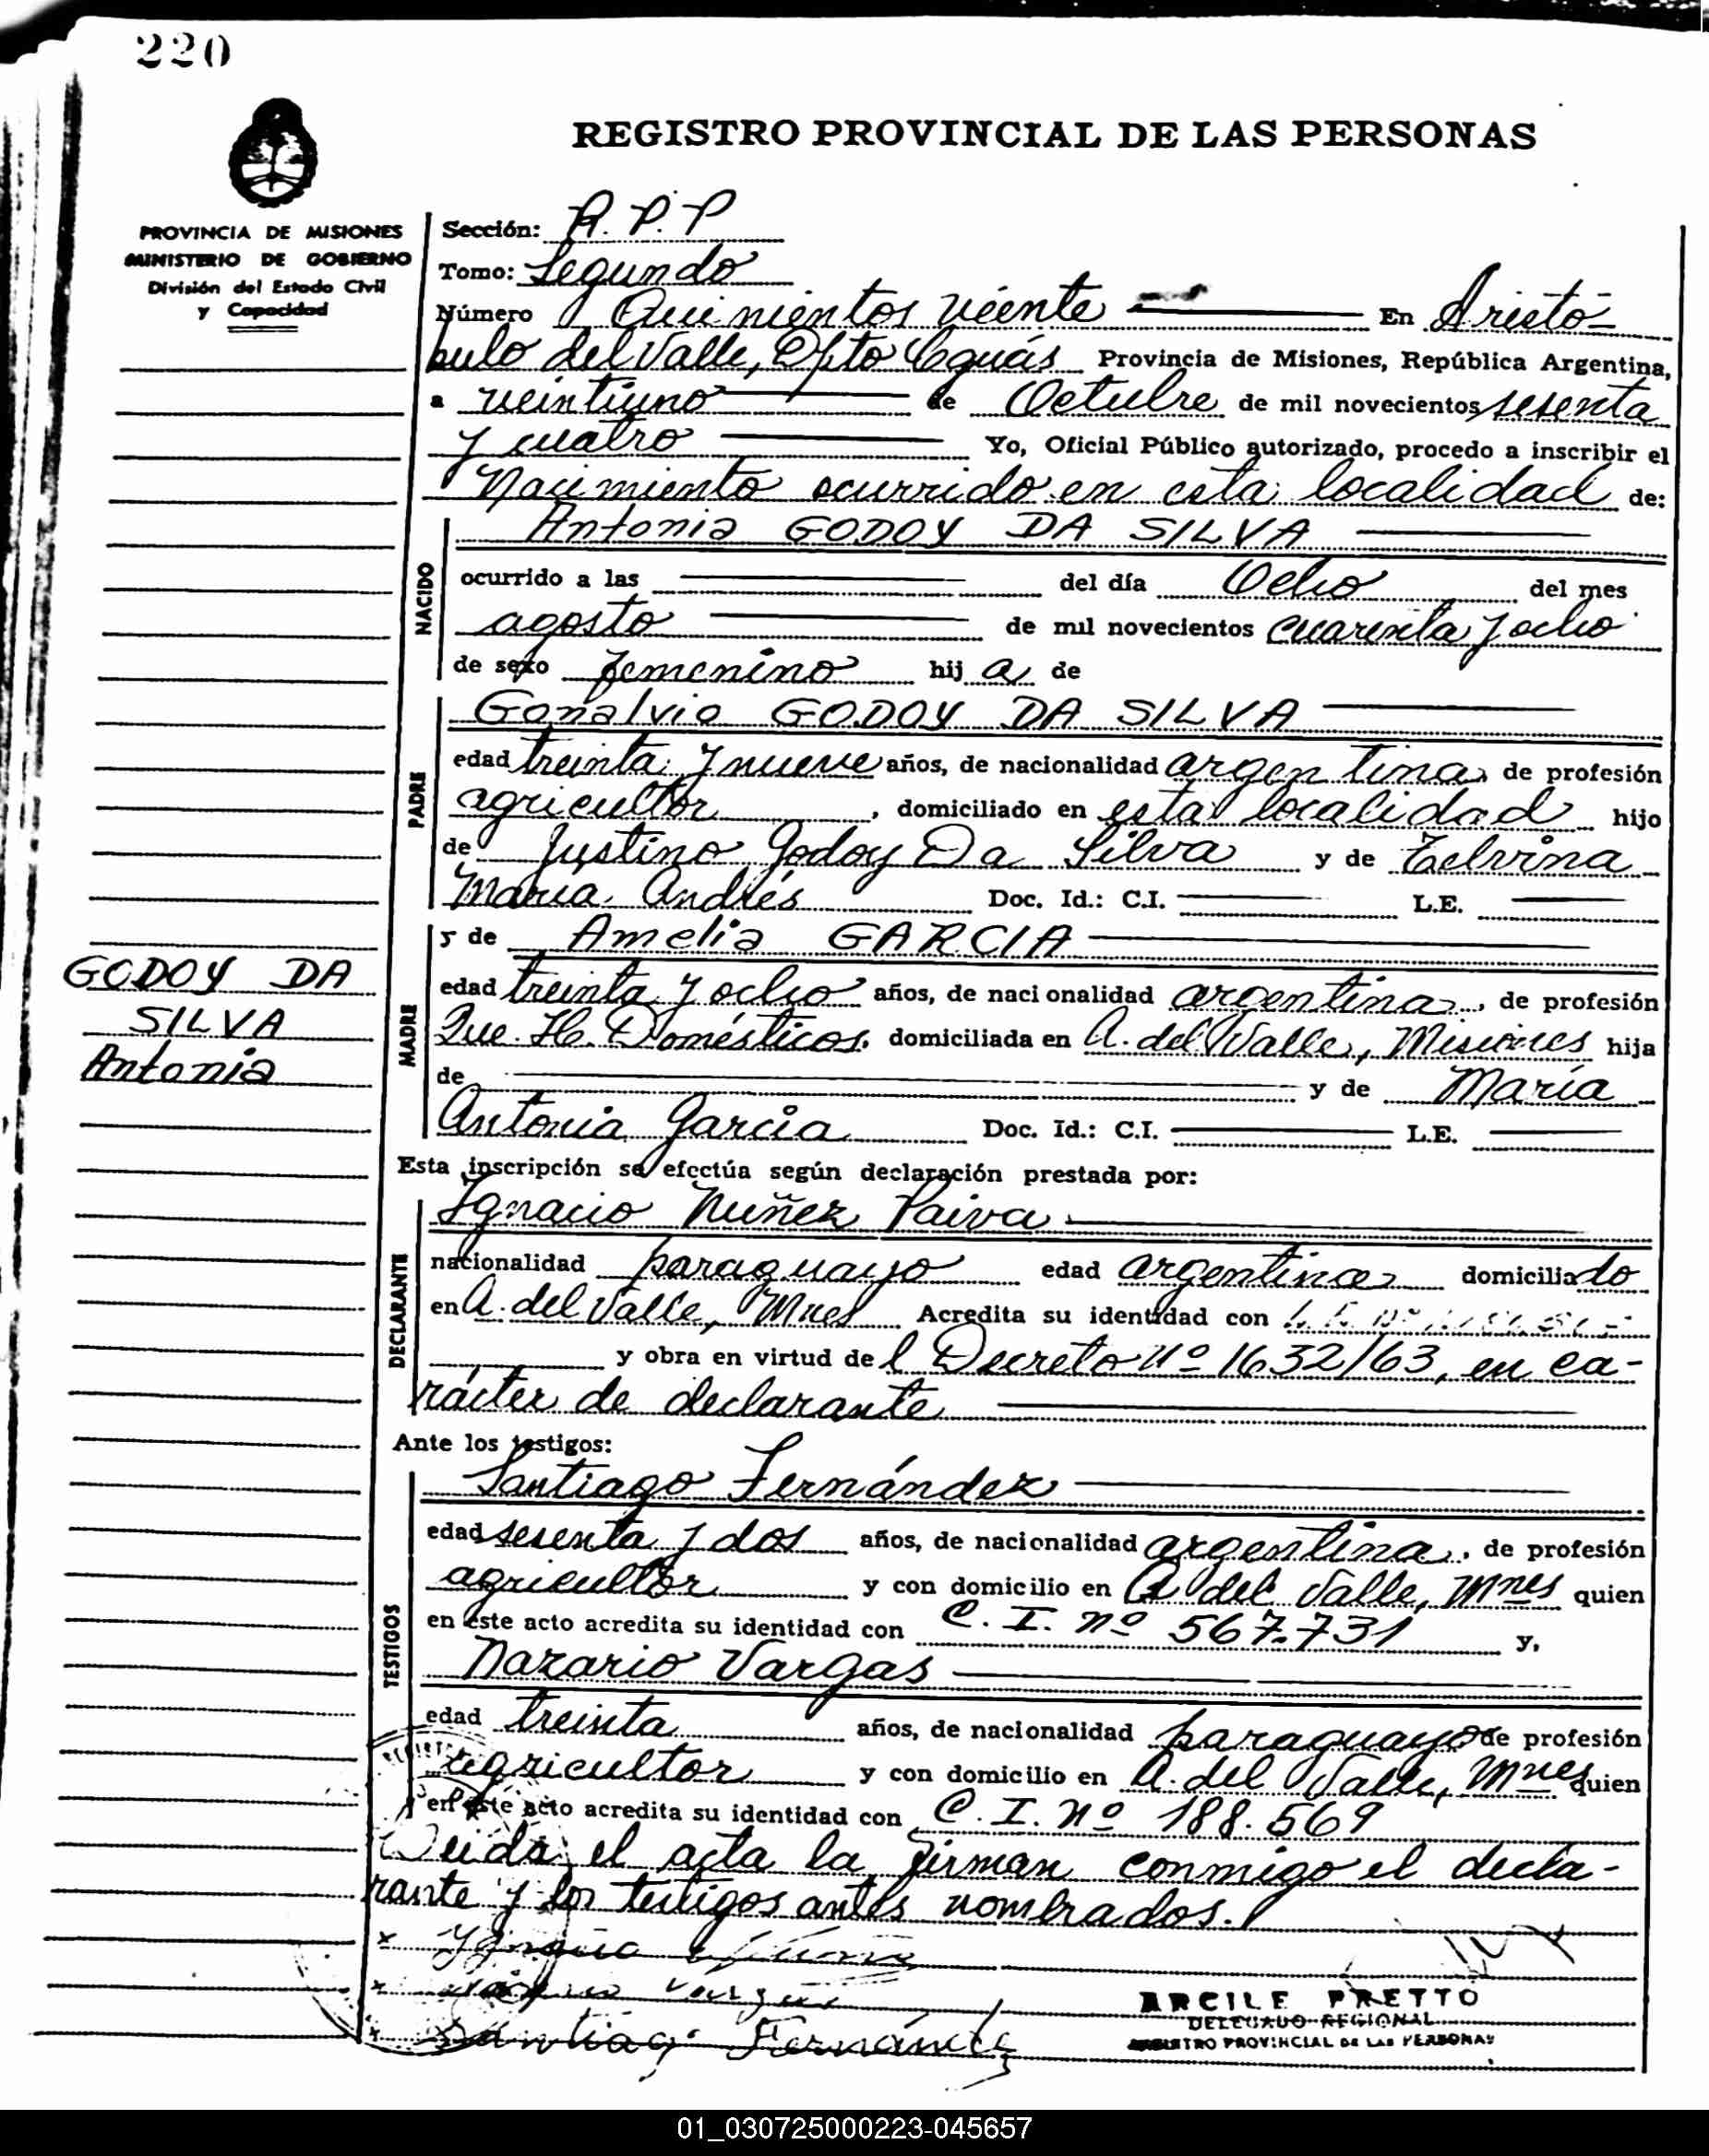 220
REGISTRO PROVINCIAL DE LAS PERSONAS
PROVINCIA DE MISIONES
MINISTERIO DE GOBIERNO
División del Estado Civil
y Capacidad
Sección: R. P. P
Tomo: Segundo
Número Quinientos veinte En Aristó-
bulo del Valle, Dpto Cguás Provincia de Misiones, República Argentina,
a veintiuno de Octubre de mil novecientos sesenta
y cuatro Yo, Oficial Público autorizado, procedo a inscribir el
Nacimiento ocurrido en esta localidad de:
NACIDO
Antonia GODOY DA SILVA
ocurrido a las del día Ocho del mes
agosto de mil novecientos cuarenta y ocho
de sexo femenino hij a de
PADRE
Gonalvio GODOY DA SILVA
edad treinta y nueve años, de nacionalidad argentina, de profesión
agricultor, domiciliado en esta localidad hijo
de Justino Godoy Da Silva y de Telvina
María Andrés Doc. Id.: C.I. L.E.
MADRE
y de Amelia GARCIA
edad treinta y ocho años, de nacionalidad argentina, de profesión
Que. H. Domésticos, domiciliada en A. del Valle, Misiones hija
de y de María
Antonia García Doc. Id.: C.I. L.E.
GODOY DA
SILVA
Antonia
Esta inscripción se efectúa según declaración prestada por:
DECLARANTE
Ignacio Nuñez Paiva
nacionalidad paraguayo edad argentina domiciliado
en A. del Valle, Mnes Acredita su identidad con
y obra en virtud del Decreto Nº 1632/63, en ca-
rácter de declarante
Ante los testigos:
TESTIGOS
Santiago Fernández
edad sesenta y dos años, de nacionalidad argentina, de profesión
agricultor y con domicilio en A del Valle, Mnes quien
en este acto acredita su identidad con C. I. nº 567.731 y,
Nazario Vargas
edad treinta años, de nacionalidad paraguayo de profesión
agricultor y con domicilio en A. del Valle, Mnes quien
en este acto acredita su identidad con C. I. Nº 188.569
Leida el acta la firman conmigo el decla-
rante y los testigos antes nombrados.
x Ignacio
x Vargas
x Santiago Fernández
ARCILE PRETTO
DELEGADO REGIONAL
REGISTRO PROVINCIAL DE LAS PERSONAS
01_030725000223-045657